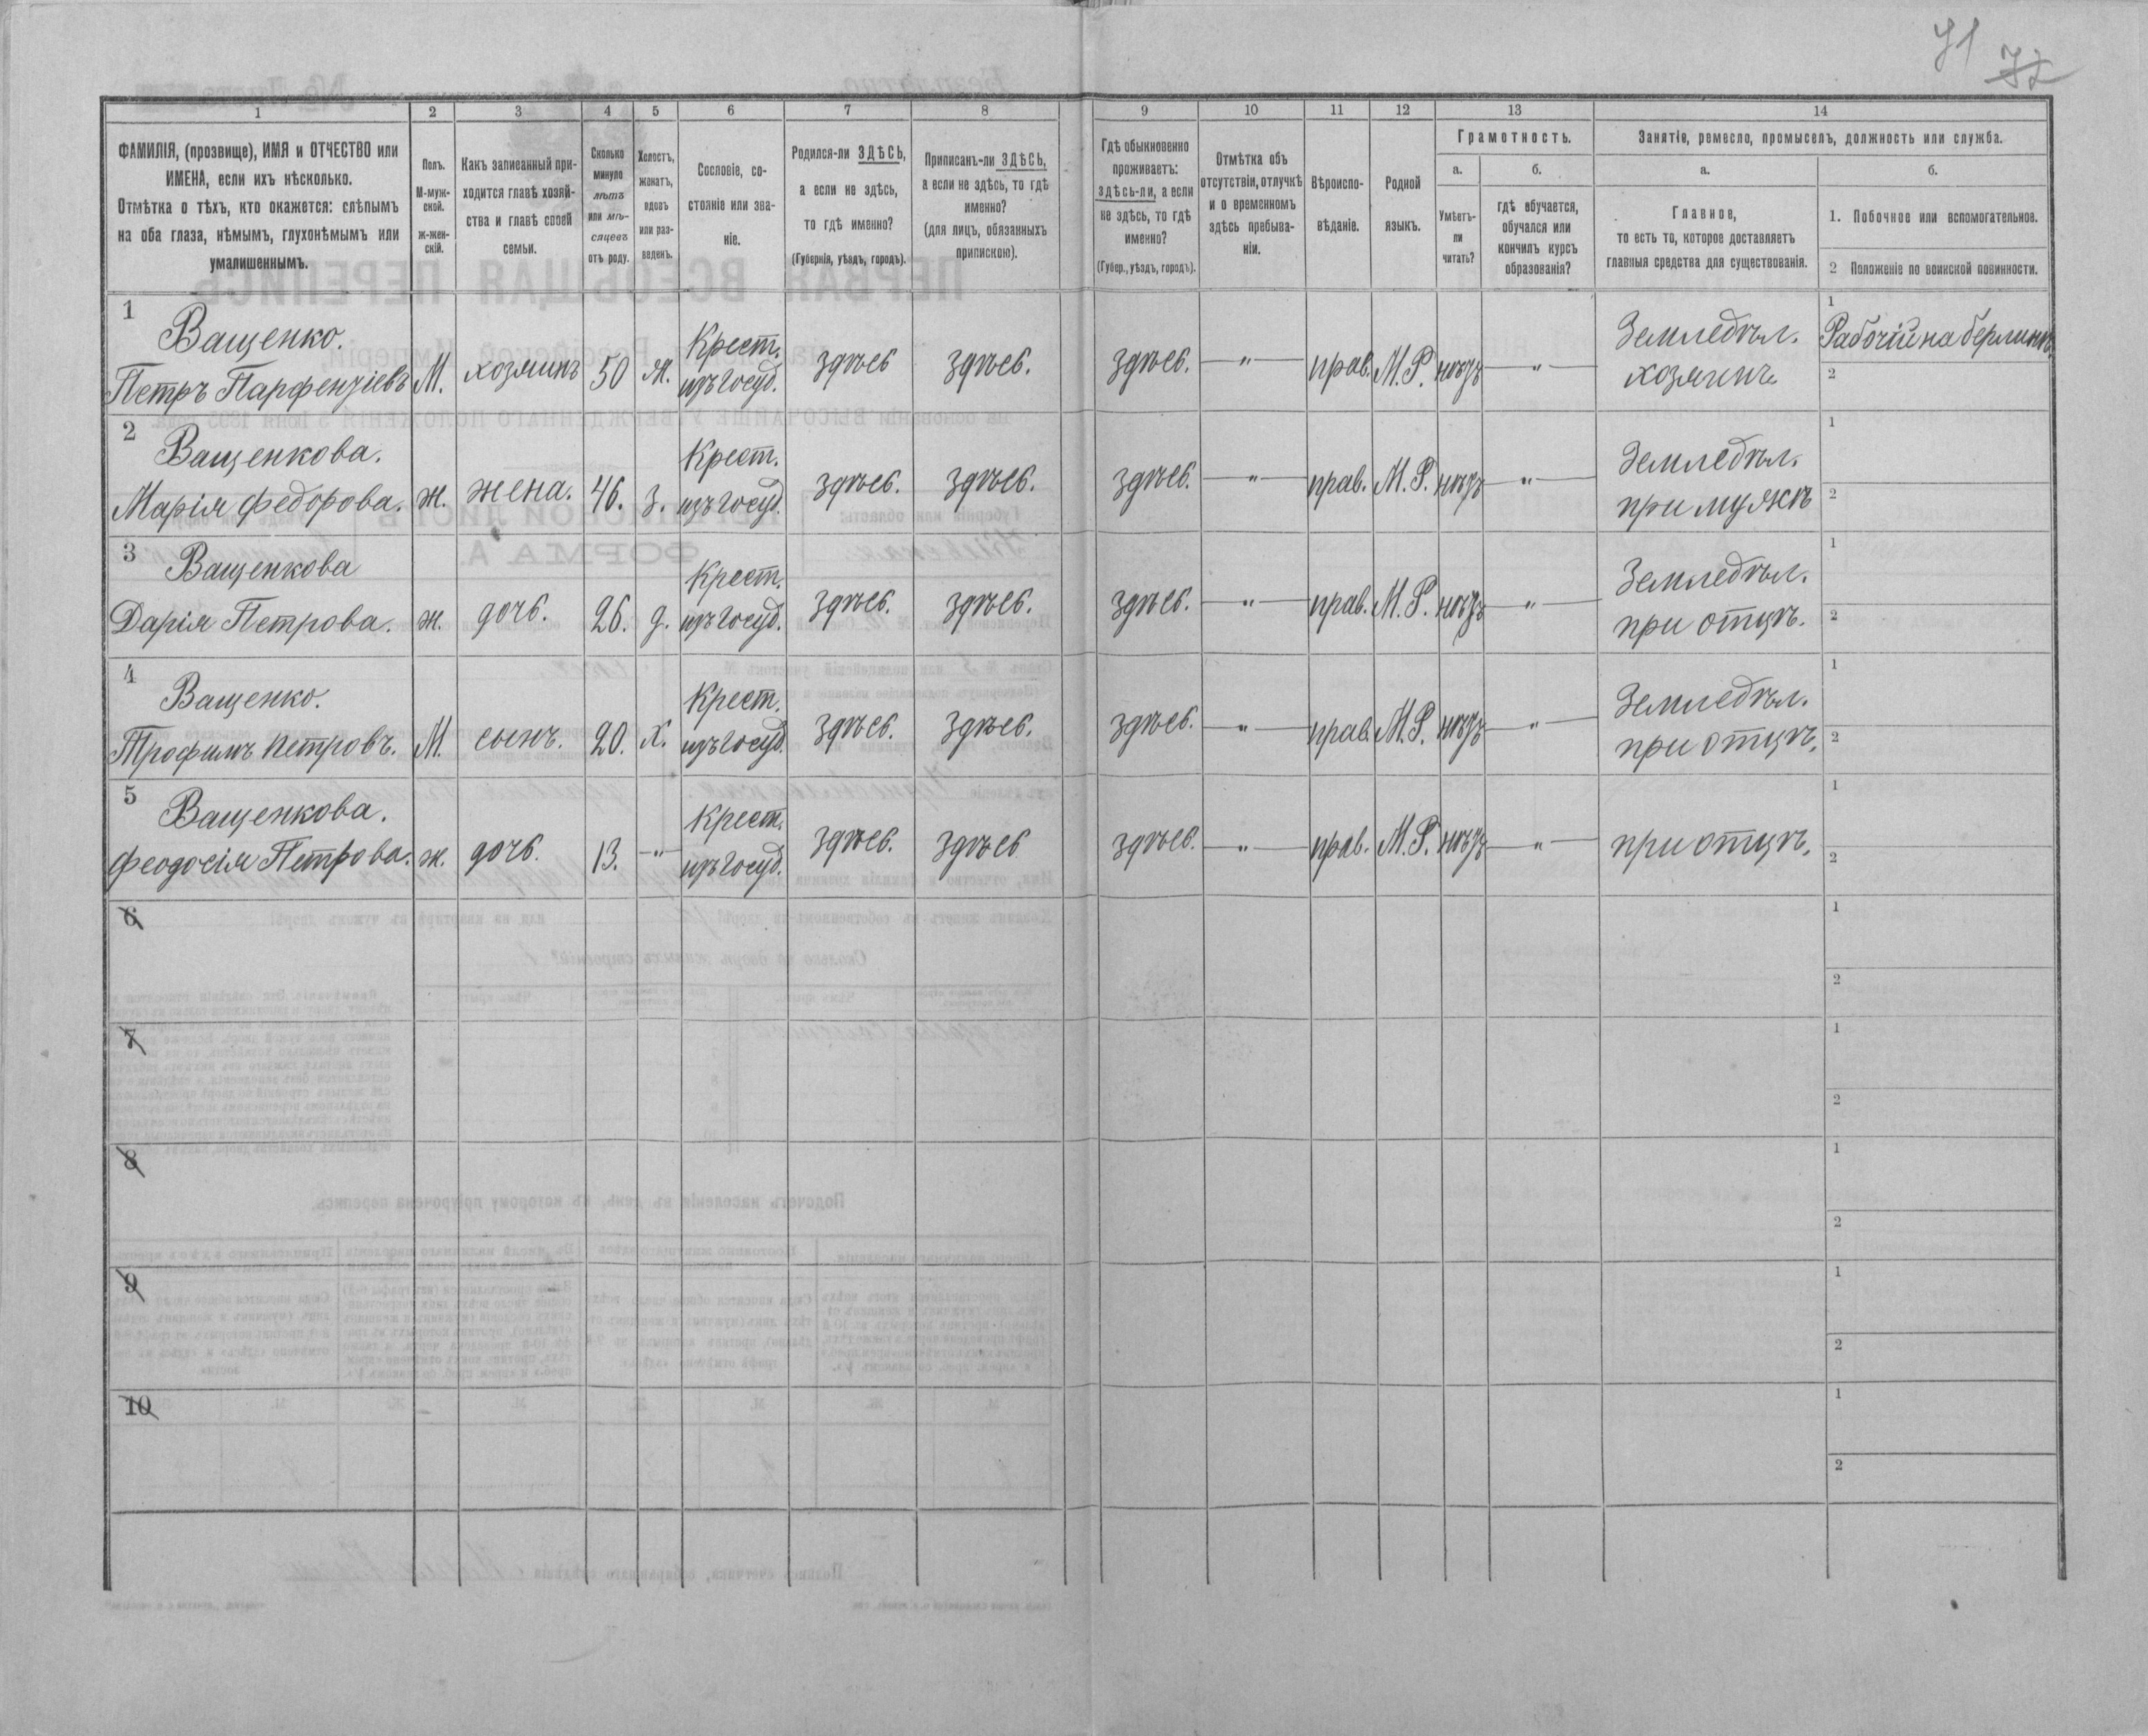 71 72
1 2 3 4 5 6 7 8 9 10 11 12 13 14
ФАМИЛІЯ, (прозвище), ИМЯ и ОТЧЕСТВО или
ИМЕНА, если ихъ нѣсколько.
Отмѣтка о тѣхъ, кто окажется: слѣпымъ
на оба глаза, нѣмымъ, глухонѣмымъ или
умалишеннымъ.
Полъ.
М-муж-
ской.
ж-жен-
скій.
Какъ записанный при-
ходится главѣ хозяй-
ства и главѣ своей
семьи.
Сколько
минуло
лѣтъ
или мѣ-
сяцевъ
отъ роду.
Холостъ,
женатъ,
вдовъ
или раз-
веденъ.
Сословіе, со-
стояніе или зва-
ніе.
Родился-ли ЗДѢСЬ,
а если не здѣсь,
то гдѣ именно?
(Губернія, уѣздъ, городъ).
Приписанъ-ли ЗДѢСЬ,
а если не здѣсь, то гдѣ
именно?
(для лицъ, обязанныхъ
припискою).
Гдѣ обыкновенно
проживаетъ:
здѣсь-ли, а если
не здѣсь, то гдѣ
именно?
(Губер., уѣздъ, городъ).
Отмѣтка объ
отсутствіи, отлучкѣ
и о временномъ
здѣсь пребыва-
ніи.
Вѣроиспо-
вѣданіе.
Родной
языкъ.
Грамотность.
а. б.
Умѣетъ-
ли
читать?
гдѣ обучается,
обучался или
кончилъ курсъ
образованія?
Занятіе, ремесло, промыселъ, должность или служба.
а. б.
Главное,
то есть то, которое доставляетъ
главныя средства для существованія.
1. Побочное или вспомогательное.
2 Положеніе по воинской повинности.
1 Ващенко. Крест. Земледѣл. 1 Рабочій на берлинѣ.
Петръ Парфентіевъ М. хозяинъ 50 ж. изъ госуд. здѣсь здѣсь. здѣсь. — " — прав. М.Р. нѣтъ — " — хозяинъ 2
2 Ващенкова. Крест. Земледѣл. 1
Марія Федорова. ж. жена. 46. з. изъ госуд. здѣсь. здѣсь. здѣсь. — " — прав. М.Р. нѣтъ — " — при мужѣ 2
3 Ващенкова Крест. Земледѣл. 1
Дарія Петрова. ж. дочь. 26. д. изъ госуд. здѣсь. здѣсь. здѣсь. — " — прав. М.Р. нѣтъ — " — при отцѣ. 2
4 Ващенко. Крест. Земледѣл. 1
Трофимъ Петровъ. М. сынъ. 20. х. изъ госуд. здѣсь. здѣсь. здѣсь. — " — прав. М.Р. нѣтъ — " — при отцѣ. 2
5 Ващенкова. Крест. 1
Феодосія Петрова. ж. дочь. 13. — " — изъ госуд. здѣсь. здѣсь здѣсь. — " — прав. М.Р. нѣтъ — " — при отцѣ. 2
6 1
2
7 1
2
8 1
2
9 1
2
10 1
2